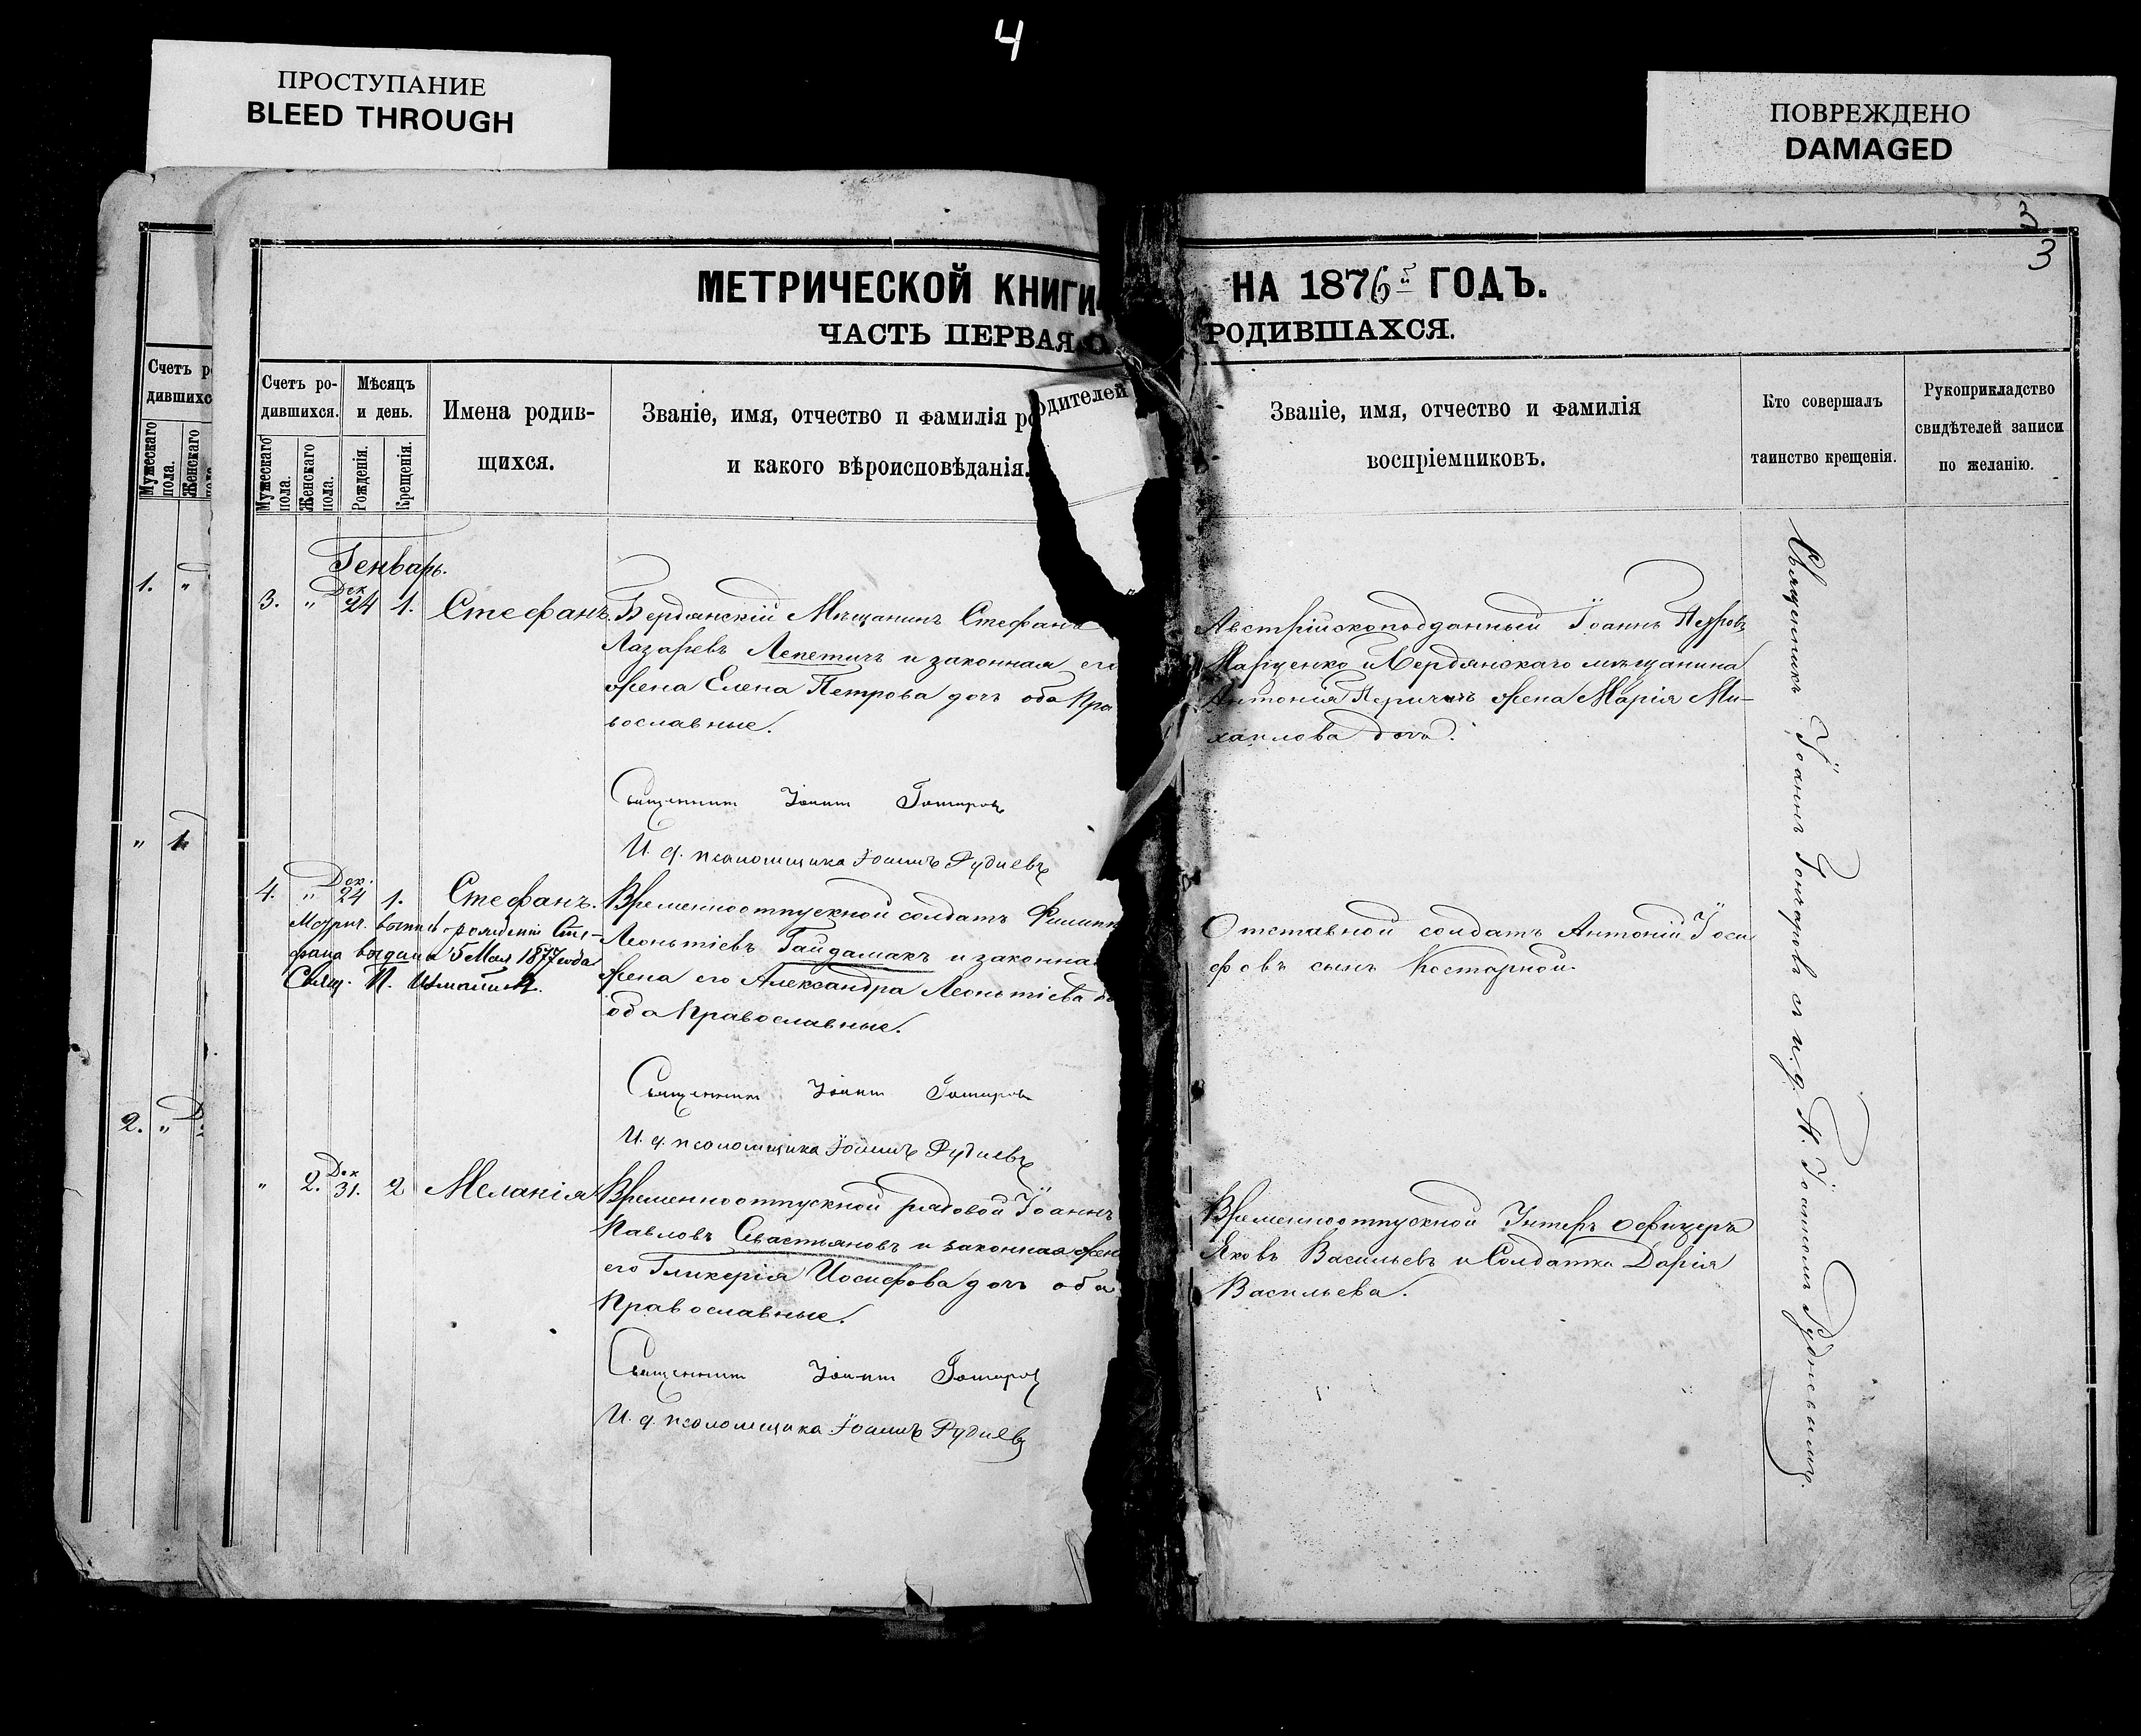 4
ПРОСТУПАНИЕ
BLEED THROUGH
ПОВРЕЖДЕНО
DAMAGED
3
3
МЕТРИЧЕСКОЙ КНИГИ НА 1876й ГОДЪ.
ЧАСТЬ ПЕРВАЯ, О РОДИВШАХСЯ.
Счетъ р
дившихс
Мужескаго
пола.
Женскаго
Счетъ ро-
дившихся.
Мужескаго
пола.
Женскаго
пола.
Мѣсяцъ
и день.
Рожденія.
Крещенія.
Имена родив-
щихся.
Званіе, имя, отчество и фамилія родителей
и какого вѣроисповѣданія.
Званіе, имя, отчество и фамилія
воспріемниковъ.
Кто совершалъ
таинство крещенія.
Рукоприкладство
свидѣтелей записи
по желанію.
1. "
" 1
2. "
Генварь.
3. " Дек 24 1. Стефанъ.
Бердянскій Мѣщанинъ Стефанъ
Лазаревъ Лепетичъ и законная его
жена Елена Петрова дочь оба Пра
вославные.
Австрійскоподданный Іоаннъ Петровъ
Марценко и Бердянскаго мѣщанина
Антонія Перичичъ жена Марія Ми-
хаилова дочь.
Священникъ Іоаннъ Гончаровъ
И. д. псаломщика Іоаннъ Рудневъ
4. " Дек. 24 1. Стефанъ.
Метрич. выпись о рожденіи Сте-
фана выдана 5 Мая 1877 года
Свящ. П.
Временноотпускной солдатъ Филипп
Леонтіевъ Гайдамакъ и законная
жена его Александра Леонтіева до
оба Православные.
Отставной солдатъ Антоній Іоси
фовъ сынъ Костарной.
Священникъ Іоаннъ Гончаровъ
И. д. псаломщика Іоаннъ Рудневъ
" 2. Дек 31. 2 Меланія
Временноотпускной рядовой Іоаннъ
Павловъ Севастьяновъ и законная жен
его Гликерія Иосифова дочь оба
Православные.
Временноотпускной Унтеръ офицеръ
Яковъ Васильевъ и Солдатка Дарія
Васильева.
Священникъ Іоаннъ Гончаровъ
И. д. псаломщика Іоаннъ Рудневъ
Священникъ Іоаннъ Гончаровъ съ и. д. П. Іоанномъ Рудневымъ.